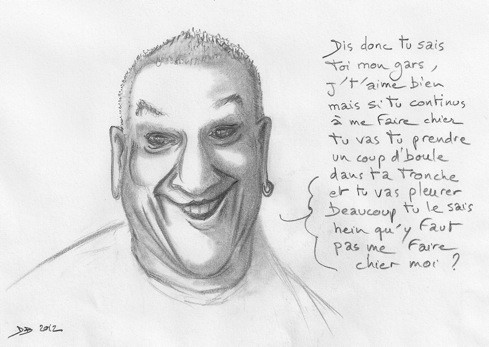 Dis donc tu sais
toi mon gars,
j't'aime bien
mais si tu continus
à me faire chier
tu vas tu prendre
un coup d'boule
dans ta tronche
et tu vas pleurer
beaucoup tu le sais
hein qu'y faut
pas me faire
chier moi ?
2012